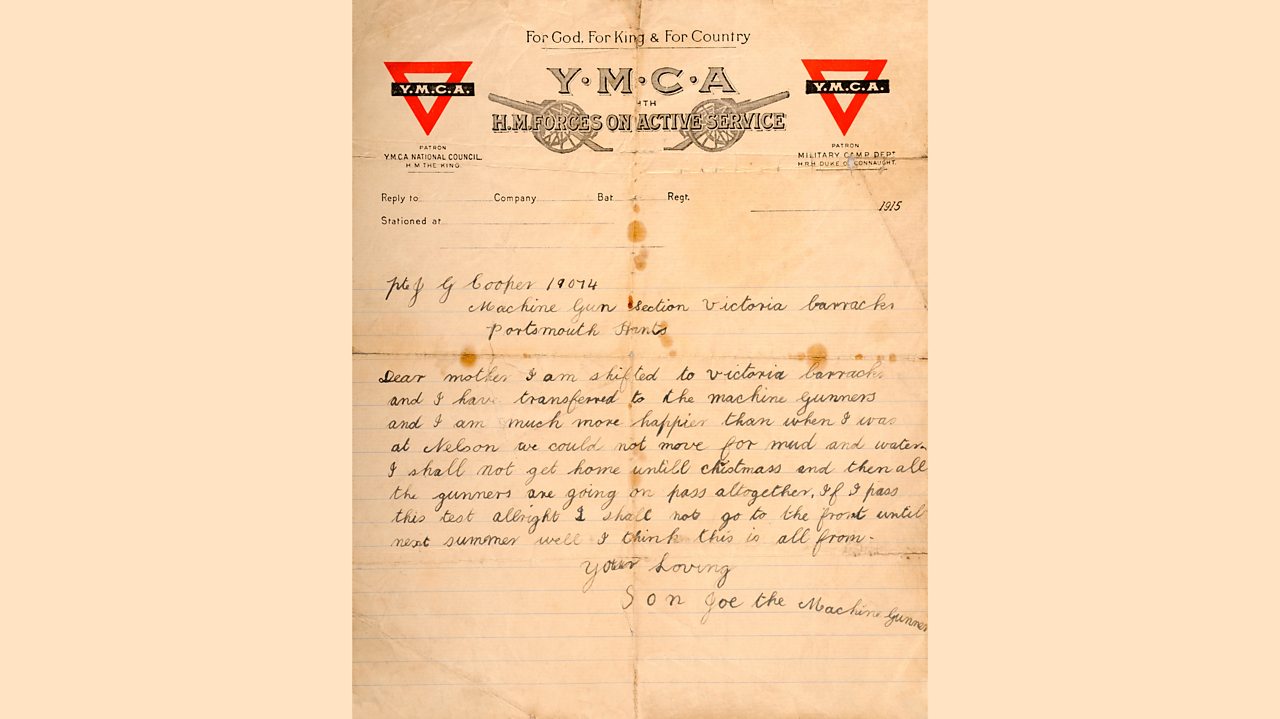 For God, For King & For Country
Y·M·C·A
Y.M.C.A.
Y.M.C.A.
WITH
H.M. FORCES ON ACTIVE SERVICE
PATRON
Y.M.C.A NATIONAL COUNCIL.
H.M THE KING
PATRON
MILITARY CAMP DEPT
H.R.H DUKE OF CONNAUGHT.
Reply to Company Bat Regt.
1915
Stationed at
pte J G Cooper 19074
Machine Gun Section Victoria barracks
Portsmouth Hants
Dear mother I am shifted to Victoria barracks
and I have transferred to the machine Gunners
and I am much more happier than when I was
at Nelson we could not move for mud and water.
I shall not get home untill chistmass and then all
the gunners are going on pass altogether. If I pass
this test allright I shall not go to the front until
next summer well I think this is all from.
Your Loving
Son Joe the Machine Gunner